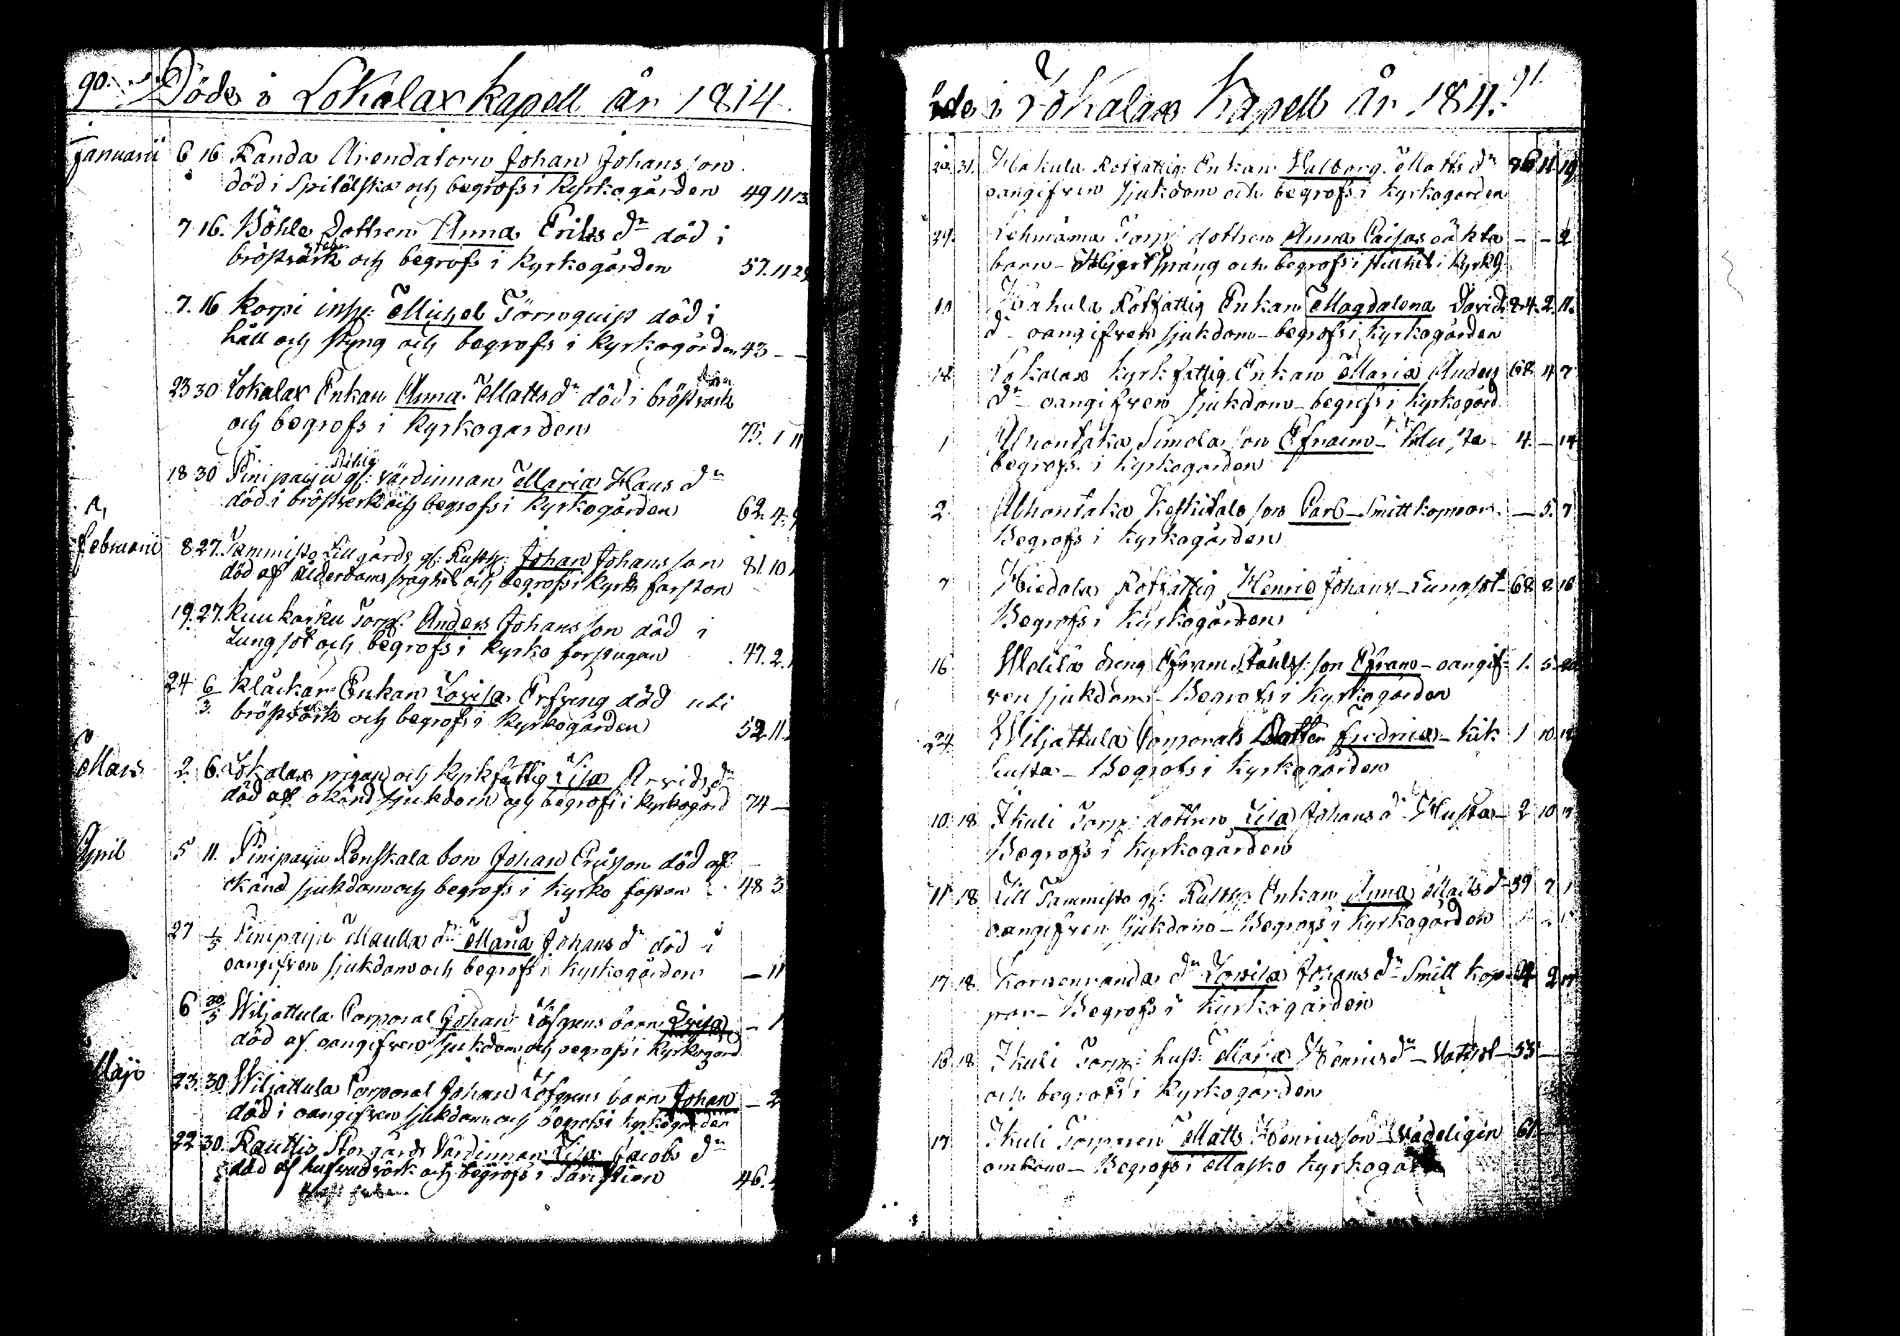 90. Döde i Lokalax kapell år 1814.
Januarii 6 16 Randa Arendatorn Johan Johansson
död i Spitälska och begrofs i Kyrkogården 49 11 13
7 16. Böhle Dottren Anna Eriks dr död i
bröstvärk och begrofs i Kyrkogården 57. 11 29
7. 16 Korpi insp: Michel Törnquist död i
håll och styng och begrofs i Kyrkogården 43 – –
23 30 Lokalax Enkan Anna Matts dr död i bröstvärk
och begrofs i Kyrkogården 75. 1 11
18 30 Pinipaiju gf: Värdinnan Maria Hans dr
död i bröstverk och begrofs i Kyrkogården 62. 4.
Februarii 8 27. Tammisto Lillgårds gf: Rusth: Johan Johansson 81. 10
död af ålderdoms svaghet och begrofs i Kyrk farston
19. 27. Kuukarku Torp: Anders Johansson död i
Lungsot och begrofs i Kyrko farstugan 47. 2.
24 6/3. Kláckar Enkan Lovisa Erfving död uti
bröstvärk och begrofs i Kyrkogården 52. 11.
Mars 2. 6. Lokalax pigan och Kyrkfattig Lisa Arvids dr
död af okänd sjukdom och begrofs i Kyrkogård 74 –
April 5 11. Pinipaiju Penskala bon Johan Ericsson död af
okänd sjukdom och begrofs i Kyrko faston 48 3
27 1/5 Pinipaiju Maulla dr Maria Johans dr död i
oangifven sjukdom och begrofs i Kyrkogården – 11
6 30/5 Wiljattula Corporal Johan Löfgrens barn Lovisa – 1
död af oangifven sjukdom och begrofs i Kyrkogård
Majo 23. 30. Wiljattula Corporal Johan Löfgrens barn Johan – 2
död i oangifven sjukdom och begrofs i Kyrkogården
22 30. Rautila Storgårds Värdinnan Lisa Jacobs dr
död af hufvudvärk och begrofs i Farstien 46.
91.
öde i Lokalax Kapell År 1814.
20. 31. Hakula Rotfattig: Enkan Walborg Matts dr 86 11 19
oangifven sjukdom och begrofs i Kyrkogården
29. Lehmäma Torp: dottren Anna Caisas oäkta – – 2
barn – Hjertsprång och begrofs i stillhet i Kyrkg
10 Hakula Rotfattig Enkan Magdalena Davids 84. 2. 11.
dr – oangifven sjukdom – begrofs i Kyrkogården
12 Lokalax Kyrkfattig Enkan Maria Anders 68 4 7
dr – oangifven sjukdom – begrofs i Kyrkogård
1 Alhontaka Simola son Efraim – 4. – 14
begrofs i Kyrkogården
2. Alhontaka Keskitalo son Carl – Smittkoppor. – 5. 7
Begrofs i Kyrkogården
7 Hiedala Rotfattig Henric Johans – Lungsot – 68 8 16
Begrofs i Kyrkogården
16. dreng Efraim son Efram – oangif- 1. 5 20
ven sjukdom – Begrofs i Kyrkogården
24. Wiljattula Corporals Dotter Fredrica – kik 1 10 12
husta – Begrofs i Kyrkogården
10. 18 Ikuli Torp: dottren Lisa Johans dr – Husta – 2 10
Begrofs i Kyrkogården
11 18 Lill Tammisto gf: Rusth: Enkan Anna Matts d – 59 7 1
oangifven sjukdom – Begrofs i Kyrkogården
17 18. Korvenranda dr Lovisa Johans dr – Smitt kop- 4 2
por – Begrofs i Kyrkogården
16. 18 Ikuli Torp: hust: Maria Henrics dr – Vatsjot – 53 –
och begrofs i Kyrkogården
17. Ikuli Torparen Matts Henricsson – Vådeligen 61 –
omkom – Begrofs i Masko Kyrkogård